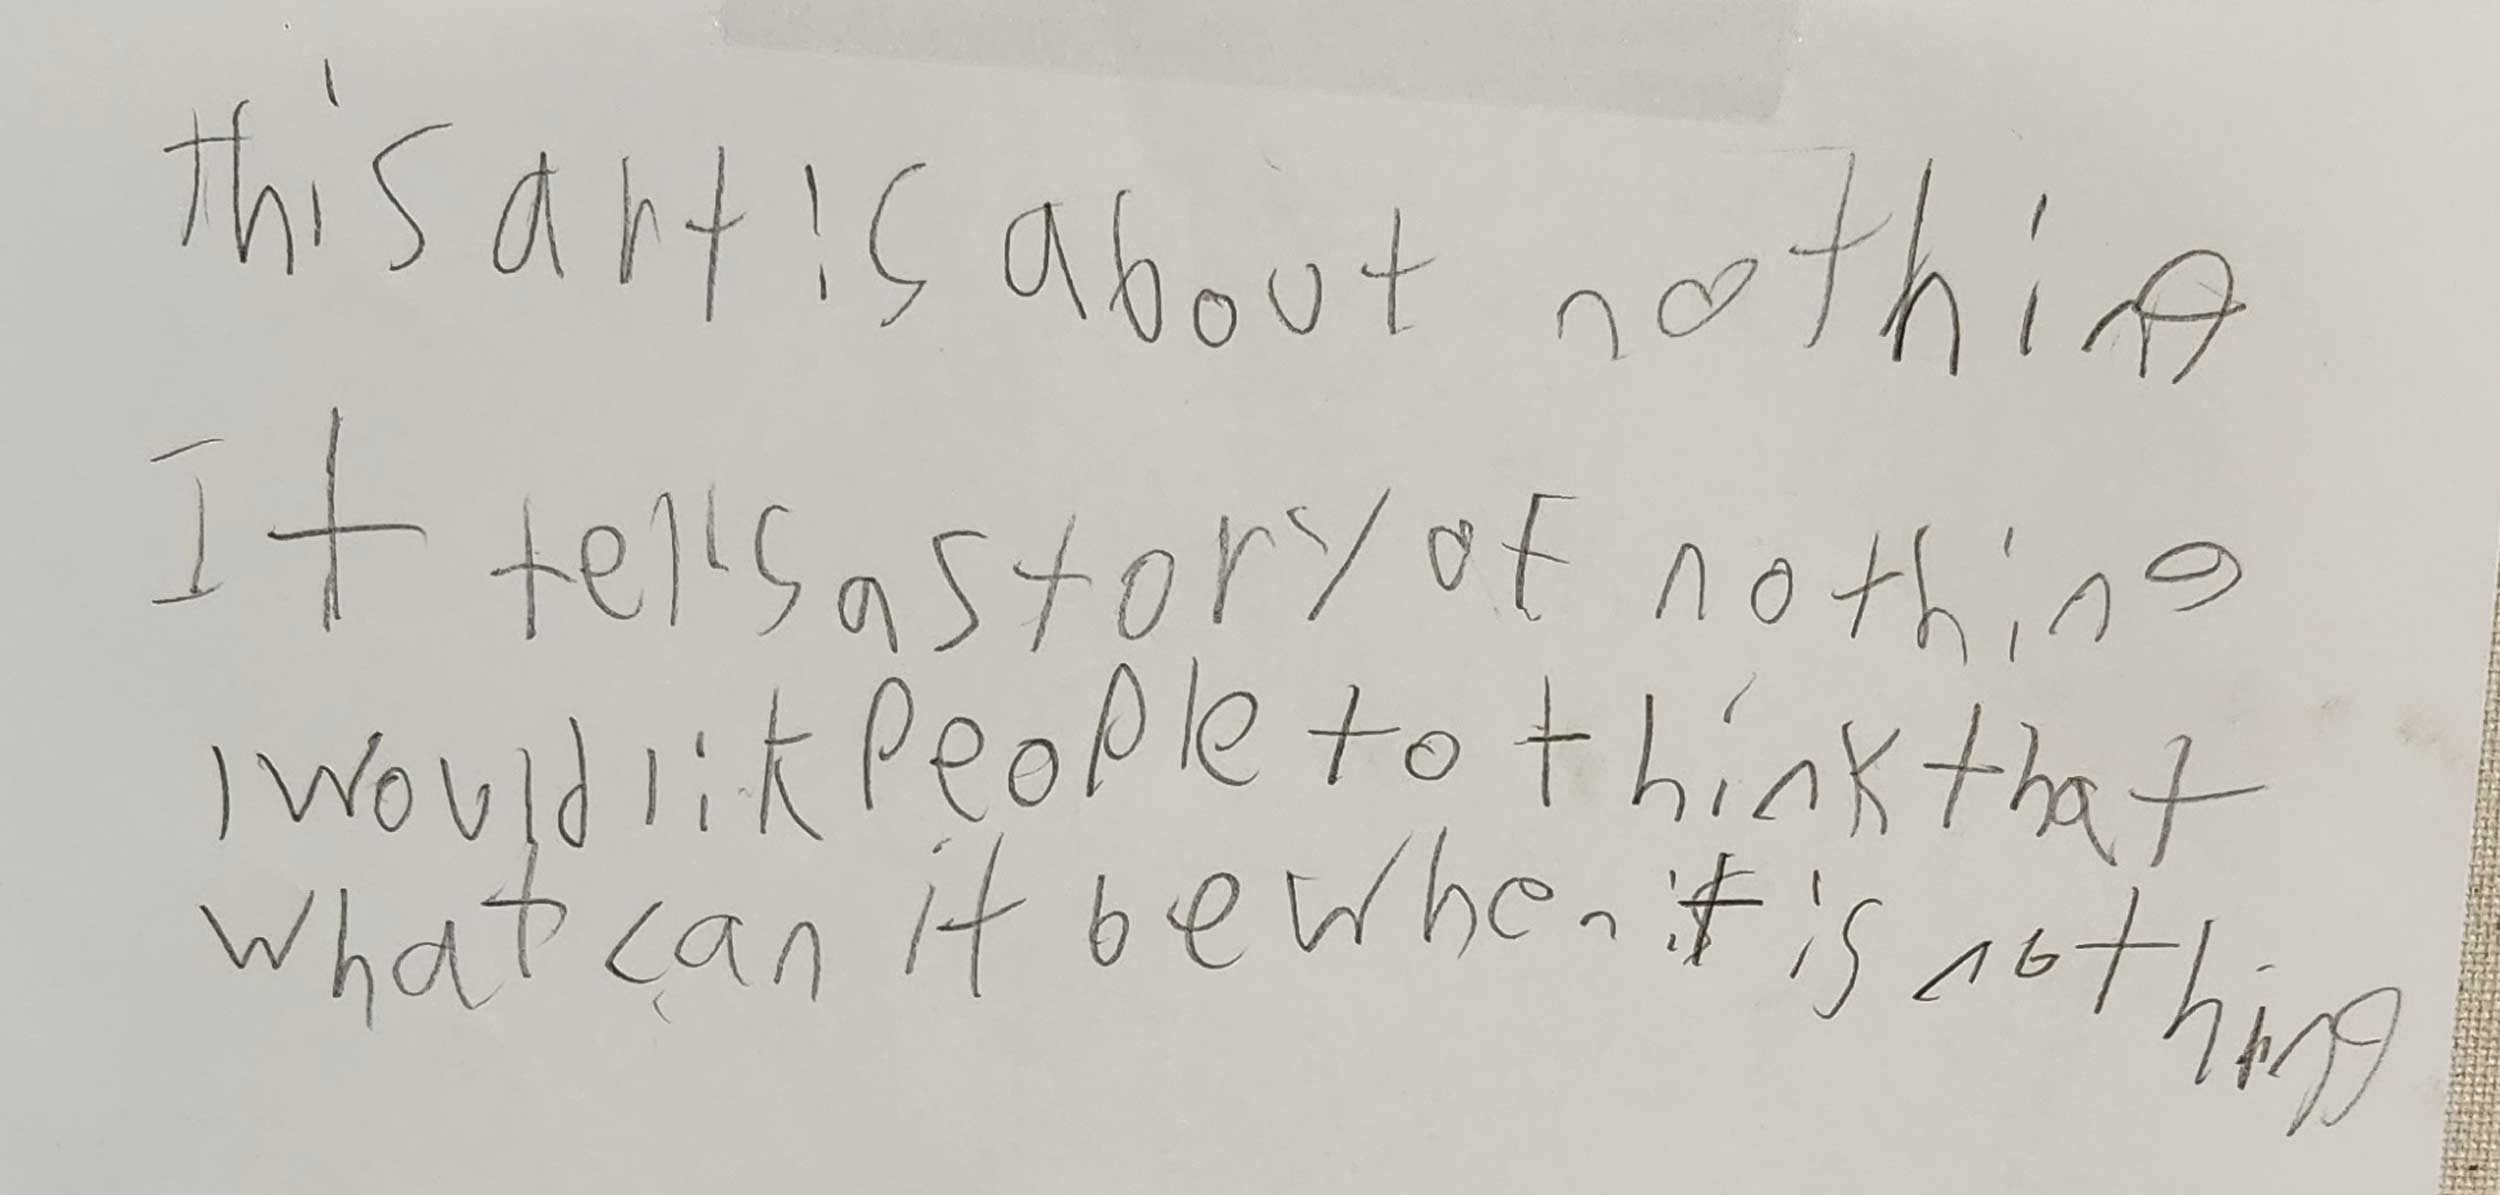 this art is about nothing
It tells a story of nothing
I would lik people to think that
what can it be when it is nothing